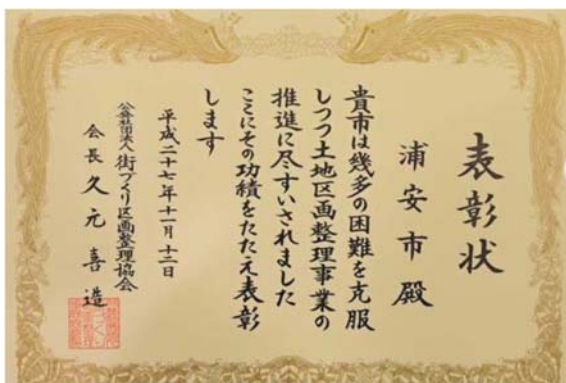 表彰状
浦安市殿
貴市は幾多の困難を克服
しつつ土地区画整理事業の
推進に尽すいされました
ここにその功績をたたえ表彰
します
平成二十七年十一月十二日
公益社団法人街づくり区画整理協会
会長久元喜造